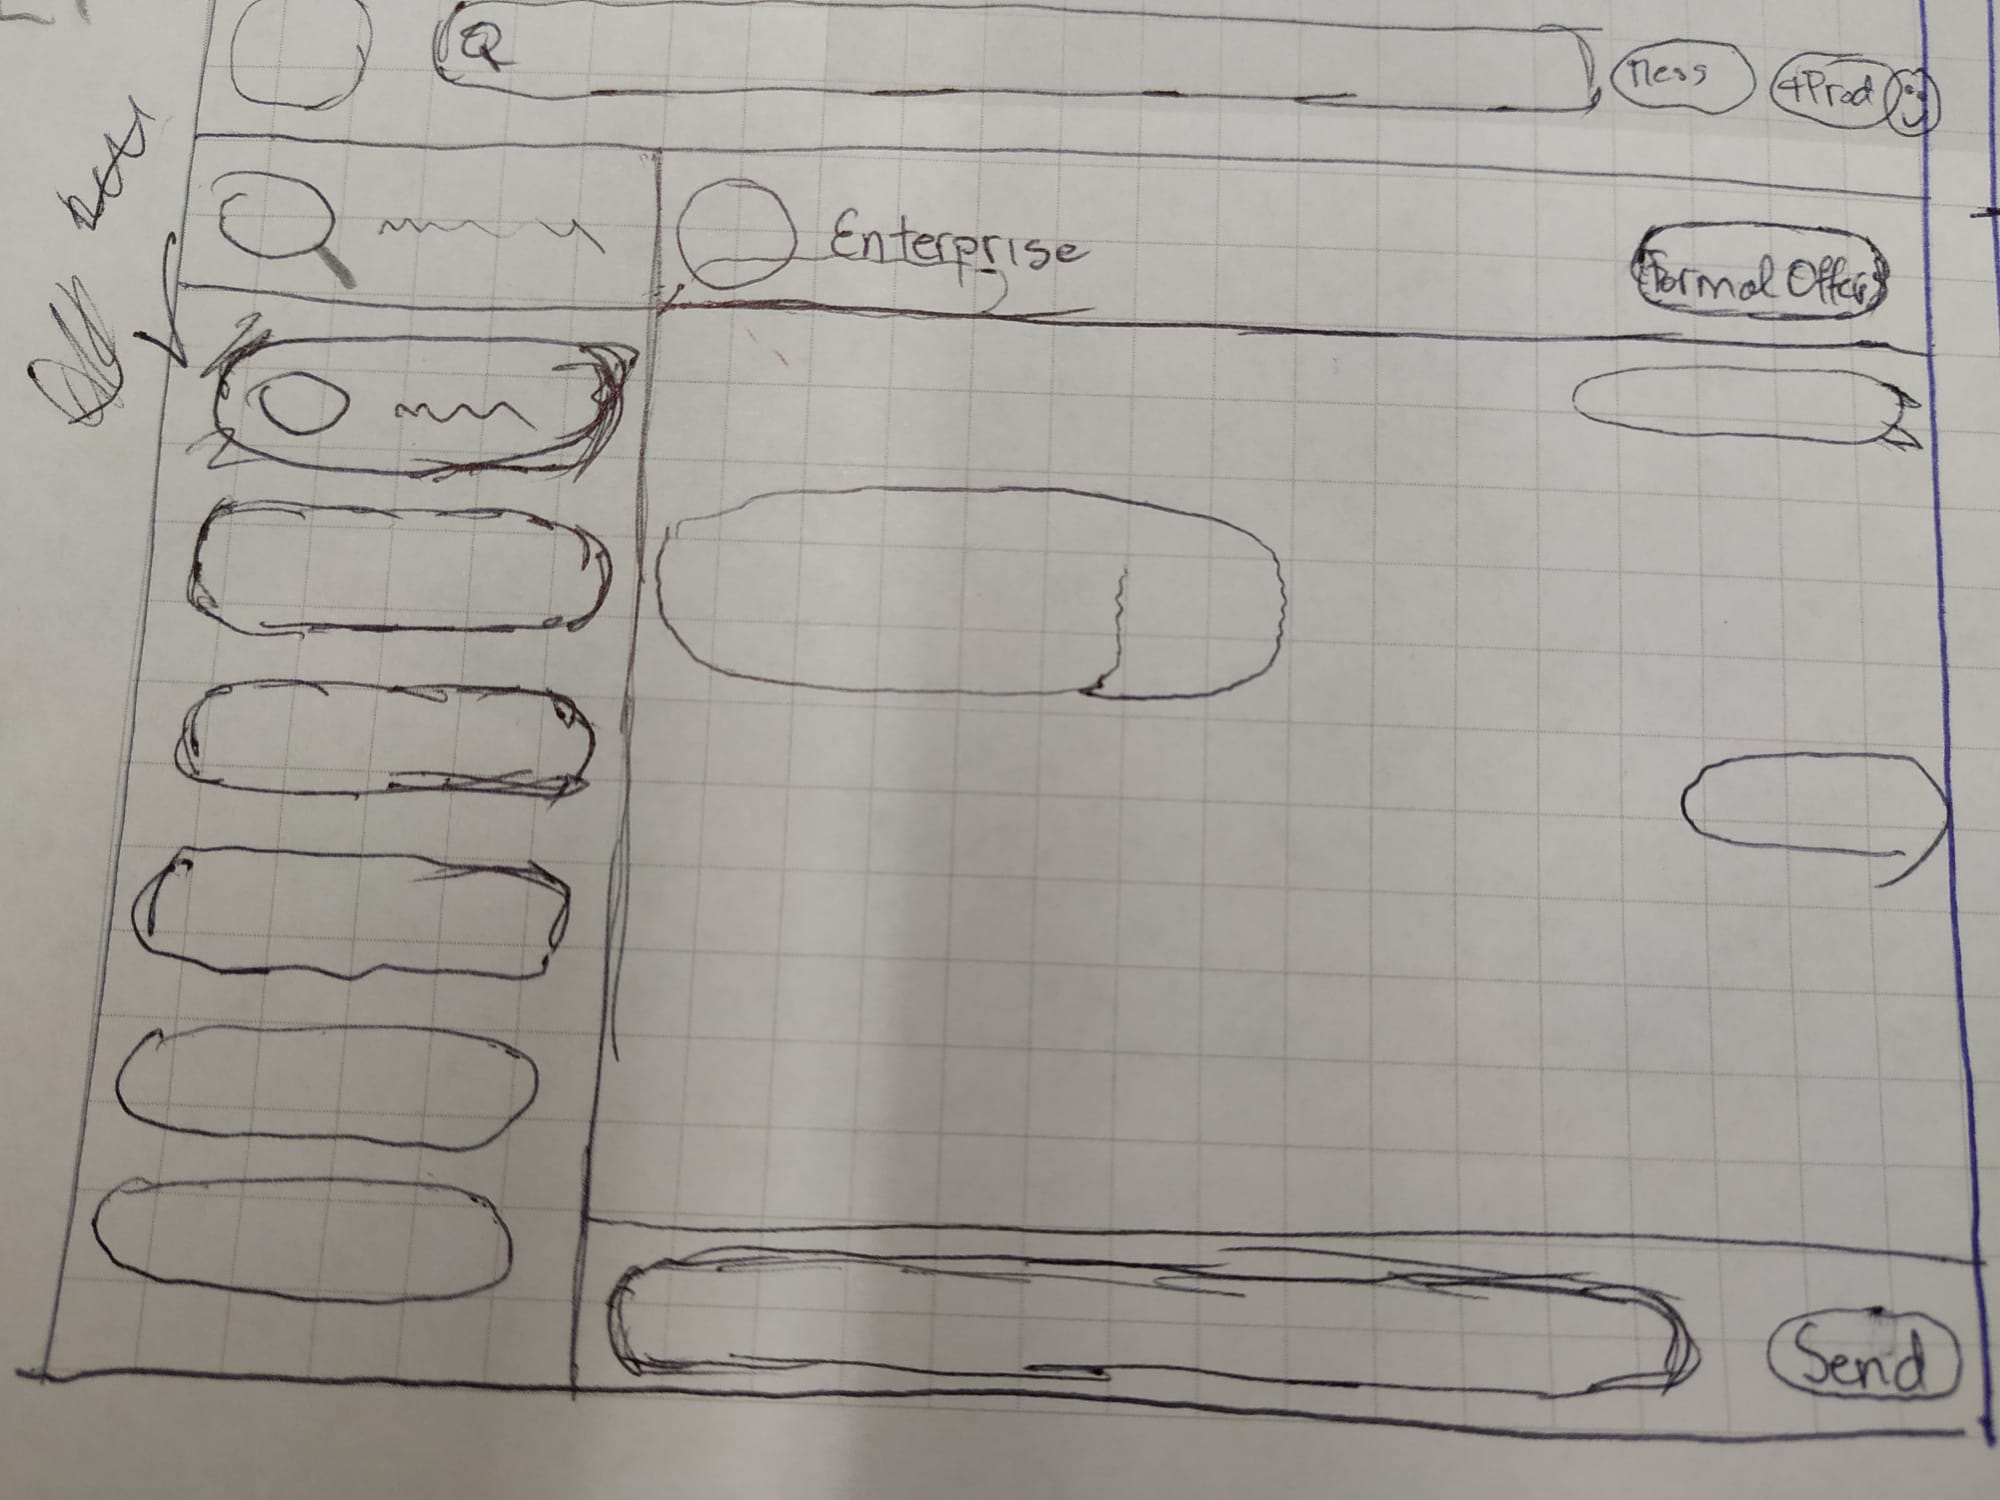 Mess +Prod
Enterprise
Formal Offer
Send